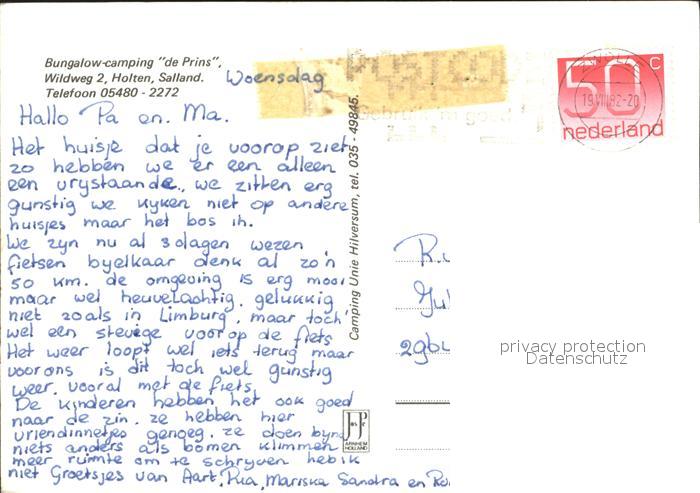 Bungalow-camping "de Prins",
Wildweg 2, Holten, Salland.
Telefoon 05480 - 2272
Woensdag
Hallo Pa en. Ma.
Het huisje dat je voorop ziet
zo hebben we er een alleen
een vrystaande, we zitten erg
gunstig we kyken niet op andere
huisjes maar het bos in.
We zyn nu al 3 dagen wezen
fietsen byelkaar denk al zo'n
50 km. de omgeving is erg mooi
maar wel heuvelachtig, gelukkig
niet zoals in Limburg, maar toch
wel een stevige voor op de fiets
Het weer loopt wel iets terug maar
voor ons is dit toch wel gunstig
weer. vooral met de fiets.
De kinderen hebben het ook goed
naar de zin. ze hebben hier
vriendinnetjes genoeg. ze doen
niets anders als bomen klimmen
meer ruimte om te schryven heb ik
niet Groetsjes van Aart, Ria, Mariska Sandra en
Camping Unie Hilversum, tel. 035 - 49845.
JosPe
ARNHEM
HOLLAND
50 c
nederland
19.VIII.82-20
privacy protection
Datenschutz